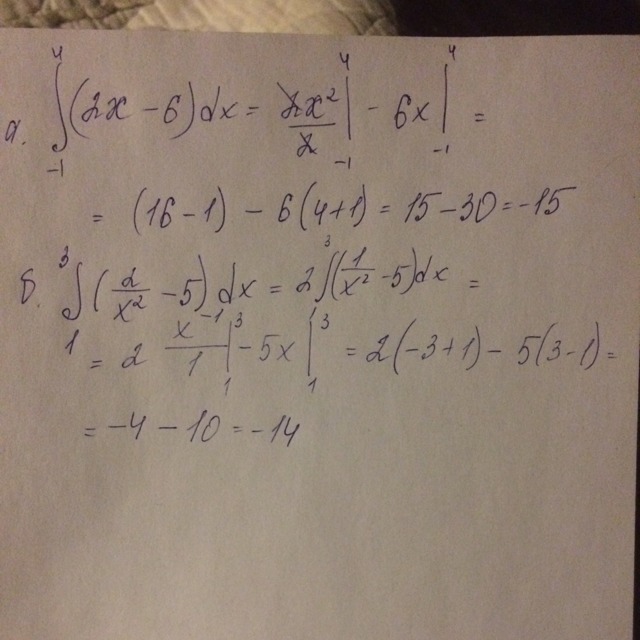 а. ∫₋₁⁴ (2x − 6) dx = 2x²/2 |₋₁⁴ − 6x |₋₁⁴ =
= (16 − 1) − 6(4+1) = 15 − 30 = −15
б. ∫₁³ (2/x² − 5) dx = 2 ∫₁³ (1/x² − 5) dx =
= 2 x⁻¹/1 |₁³ − 5x |₁³ = 2(−3+1) − 5(3−1) =
= −4 − 10 = −14